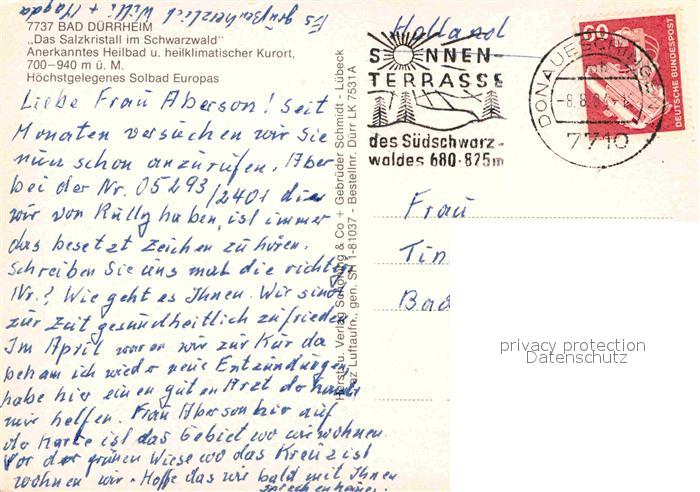 Es grüßen herzlich Willi + Magda
7737 BAD DÜRRHEIM
„Das Salzkristall im Schwarzwald"
Anerkanntes Heilbad u. heilklimatischer Kurort,
700–940 m ü. M.
Höchstgelegenes Solbad Europas
Liebe Frau Aberson! Seit
Monaten versuchen wir Sie
nun schon anzurufen. Aber
bei der Nr. 05293/2401 die
wir von Rully haben, ist immer
das besetzt Zeichen zu hören.
Schreiben Sie uns mal die richtige
Nr.? Wie geht es Ihnen. Wir sind
zur Zeit gesundheitlich zufrieden
Im April waren wir zur Kur da
bekam ich wieder neue Entzündungen
habe hier einen guten Arzt der
mir helfen. Frau Aberson hier auf
der Karte ist das Gebiet wo wir wohnen.
Vor der grünen Wiese wo das Kreuz ist
wohnen wir. Hoffe das wir bald mit Ihnen
sprechen können.
Horst u. Verlag Schöning & Co + Gebrüder Schmidt - Lübeck
Luftaufn., gen. 1-81037 - Bestellnr. Dürr LK 7531A
Holland
SONNEN-
TERRASSE
des Südschwarz-
waldes 680-825m
DONAUESCHINGEN
-8.8.
7710
60
DEUTSCHE BUNDESPOST
Frau
Tin
Bad
privacy protection
Datenschutz